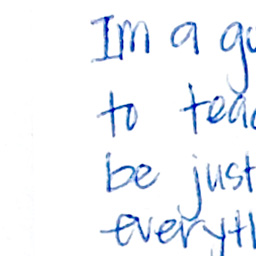 Im a gu
to teac
be just
everyth